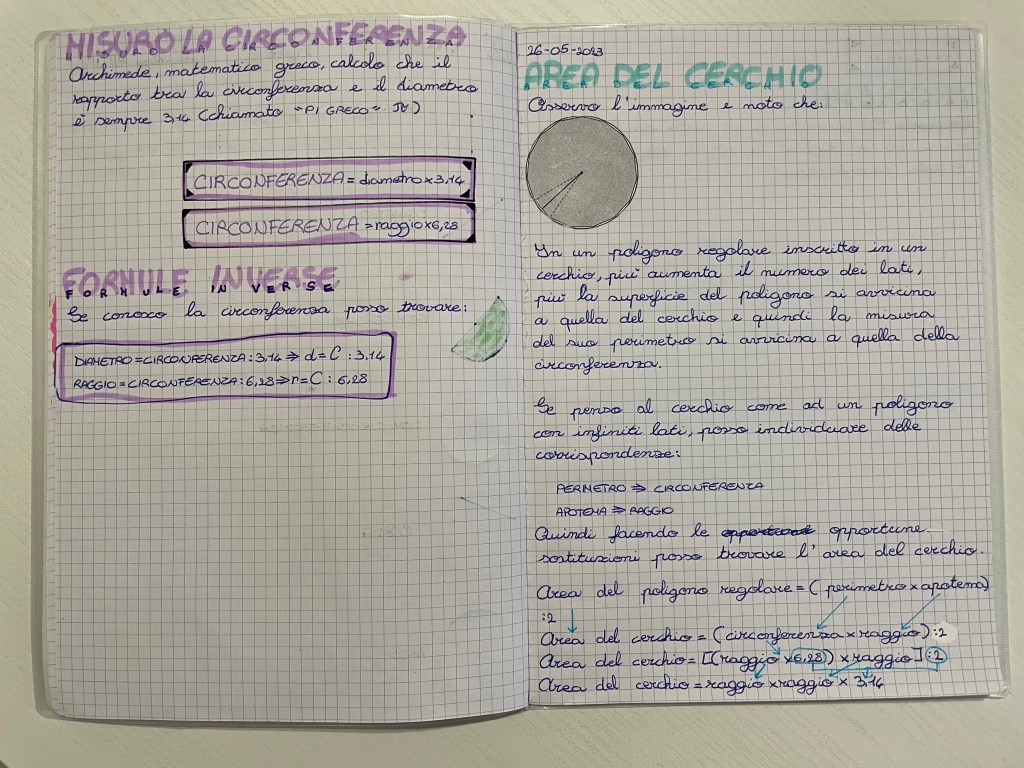 MISURO LA CIRCONFERENZA
Archimede, matematico greco, calcolò che il
rapporto tra la circonferenza e il diametro
è sempre 3,14 (chiamato "PI GRECO" π)
CIRCONFERENZA = diametro x 3,14
CIRCONFERENZA = raggio x 6,28
FORMULE INVERSE
Se conosco la circonferenza posso trovare:
DIAMETRO = CIRCONFERENZA : 3,14 ⇒ d = C : 3,14
RAGGIO = CIRCONFERENZA : 6,28 ⇒ r = C : 6,28
26-05-2023
AREA DEL CERCHIO
Osservo l'immagine e noto che:
In un poligono regolare inscritto in un
cerchio, più aumenta il numero dei lati,
più la superficie del poligono si avvicina
a quella del cerchio e quindi la misura
del suo perimetro si avvicina a quella della
circonferenza.
Se penso al cerchio come ad un poligono
con infiniti lati, posso individuare delle
corrispondenze:
PERIMETRO ⇒ CIRCONFERENZA
APOTEMA ⇒ RAGGIO
Quindi facendo le opportune
sostituzioni posso trovare l'area del cerchio.
Area del poligono regolare = (perimetro x apotema)
:2
Area del cerchio = (circonferenza x raggio) :2
Area del cerchio = [(raggio x 6,28) x raggio] :2
Area del cerchio = raggio x raggio x 3,14